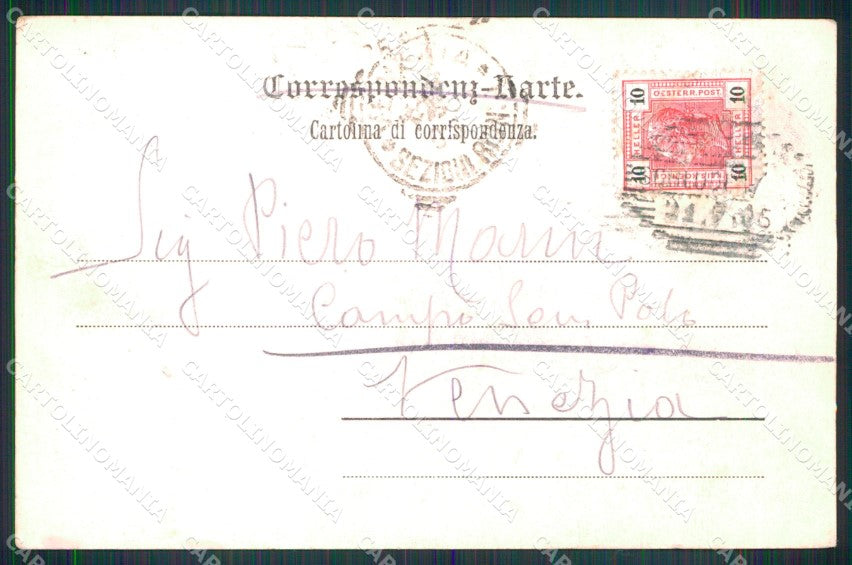 Correspondenz-Karte.
Cartolina di corrispondenza.
10 OESTERR. POST. 10
HELLER HELLER
10 10
Sig Piero
Campo San Polo
Venezia
CARTOLINOMANIA